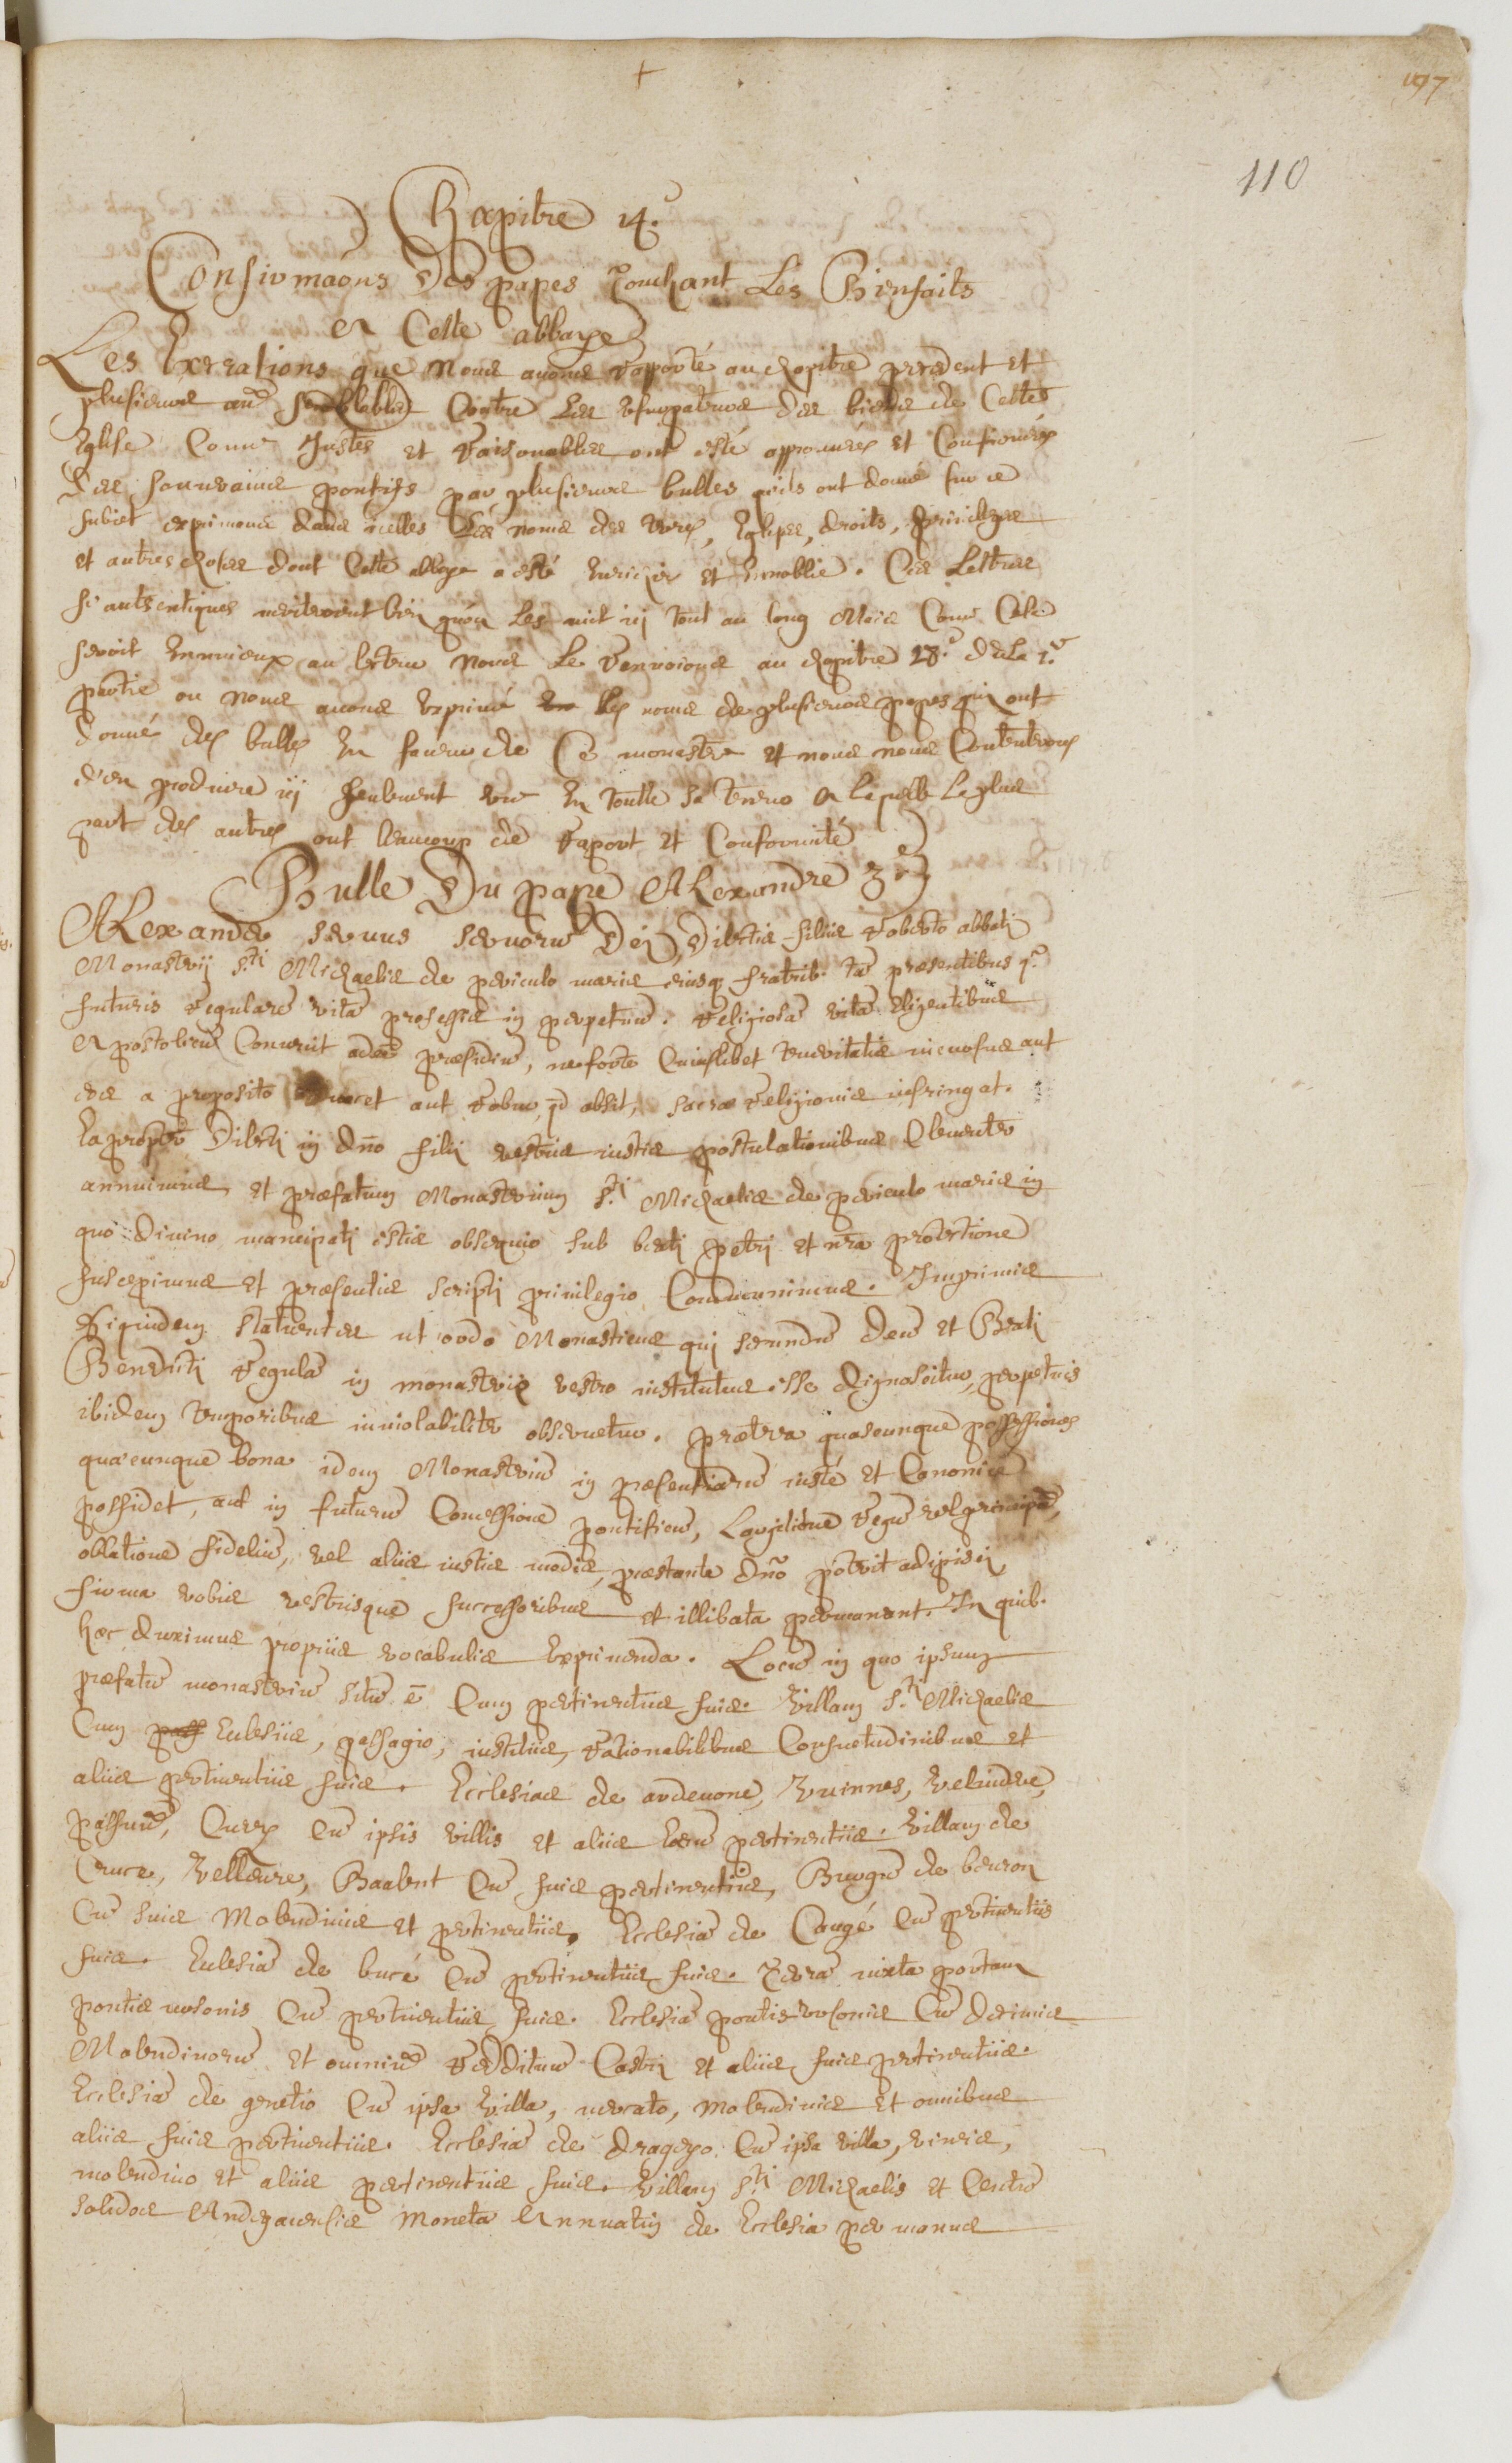 197
110
Chapitre 4.e
Confirmaõns Des papes Touchant Les Bienfaits
A Cette abbaye
Les Execrations que nous avons raporté au chapitre precedent et
plusieurs aues semblables Contre Les usurpateurs des biens de Cette
Eglise Comme Justes et raisonnables ont esté approuvées et Confirmées
Des souverains pontifs par plusieurs bulles qu'ils ont donné sur ce
subiet exprimans dans icelles Les noms des terres, Eglises, droits, privileges
et autres choses dont Cette abbaye a esté Enrichie et Ennoblie. Ces Lettres
si autentiques meriteroint bien qu'on Les mit icy tout au long Mais Comme Cela
seroit Ennuieux au lecteur nous Le renvoions au chapitre 18.e de La 1.e
partie ou nous avons Exprimé les noms de plusieurs papes qui ont
donné des bulles En faveur de Ce monastere et nous nous Contenterons
d'en produire icy seulement une En toutte sa teneur A laquelle La plus
part des autres ont beaucoup de raport et Conformité
Bulle Du pape Alexandre 3.e
Alexander servus servorũ Dei, Dilectis filiis roberto abbati
Monasterij S.ti Michaelis de periculo maris eiusq fratrib. tã præsentibus q.
futuris regularẽ vitã professis in perpetuũ. religiosã vitã eligentibus
Apostolicũ Convenit adeẽ præsidiũ, ne forte Cuiuslibet temeritatis incursus aut
eos a proposito revocet aut robur, qd absit, sacræ religionis infringat.
Eapropter Dilecti in dño filij vestris iustis postulationibus Clementer
annuimus, et præfatum Monasterium S.ti Michaelis de periculo maris in
quo divino mancipati estis obsequio sub beati Petri et nrã protectione
suscepimus et præsentis scripti privilegio Communimus. Imprimis
siquidem statuentes ut ordo Monasticus qui secundũ deũ et Beati
Benedicti regulã in monasterio vestro institutus esse dignoscitur, perpetuis
ibidem temporibus inviolabiliter observetur. præterea quascunque possessiones
quæcunque bona idem Monasteriũ in præsentiarũ iusté et Canonicé
possidet, aut in futurũ Concessione pontificũ, Largitione regũ vel principũ,
oblatione fideliũ, vel aliis iustis modis, præstante dño poterit adipisci
firma vobis vestrisque successoribus et illibata permaneant. In quib.
hæc duximus propriis vocabulis Exprimenda. Locũ in quo ipsum
præfatũ monasteriũ sitũ ẽ Cum pertinentiis suis. Villam S.ti Michaelis
Cum Ecclesiis, passagio, iustitiis, rationabilibus Consuetudinibus et
aliis pertinentiis suis. Ecclesias de ardevone,
Cũ ipsis villis et aliis Earũ pertinentiis. Villam de
Cruce, Baalent Cũ suis pertinentiis, Burgũ de beuron
Cũ suis Molendinis et pertinentiis. Ecclesiã de Caugé Cũ pertinentiis
suis. Ecclesiã de bucé Cũ pertinentiis suis. Terrã iuxta portam
pontis ursonis Cũ pertinentiis suis. Ecclesiã pontis ursonis Cũ decimis
Molendinorũ et omniũ reddituũ Castri et aliis suis pertinentiis.
Ecclesiã de genetio Cũ ipsa Villa, mercato, molendinis et omnibus
aliis suis pertinentiis. Ecclesiã de drageyo Cũ ipsa villa, vineis,
molendino et aliis pertinentiis suis. Villam S.ti Michaelis et Centũ
solidos Andegavensis Moneta Annuatim de Ecclesia per manus